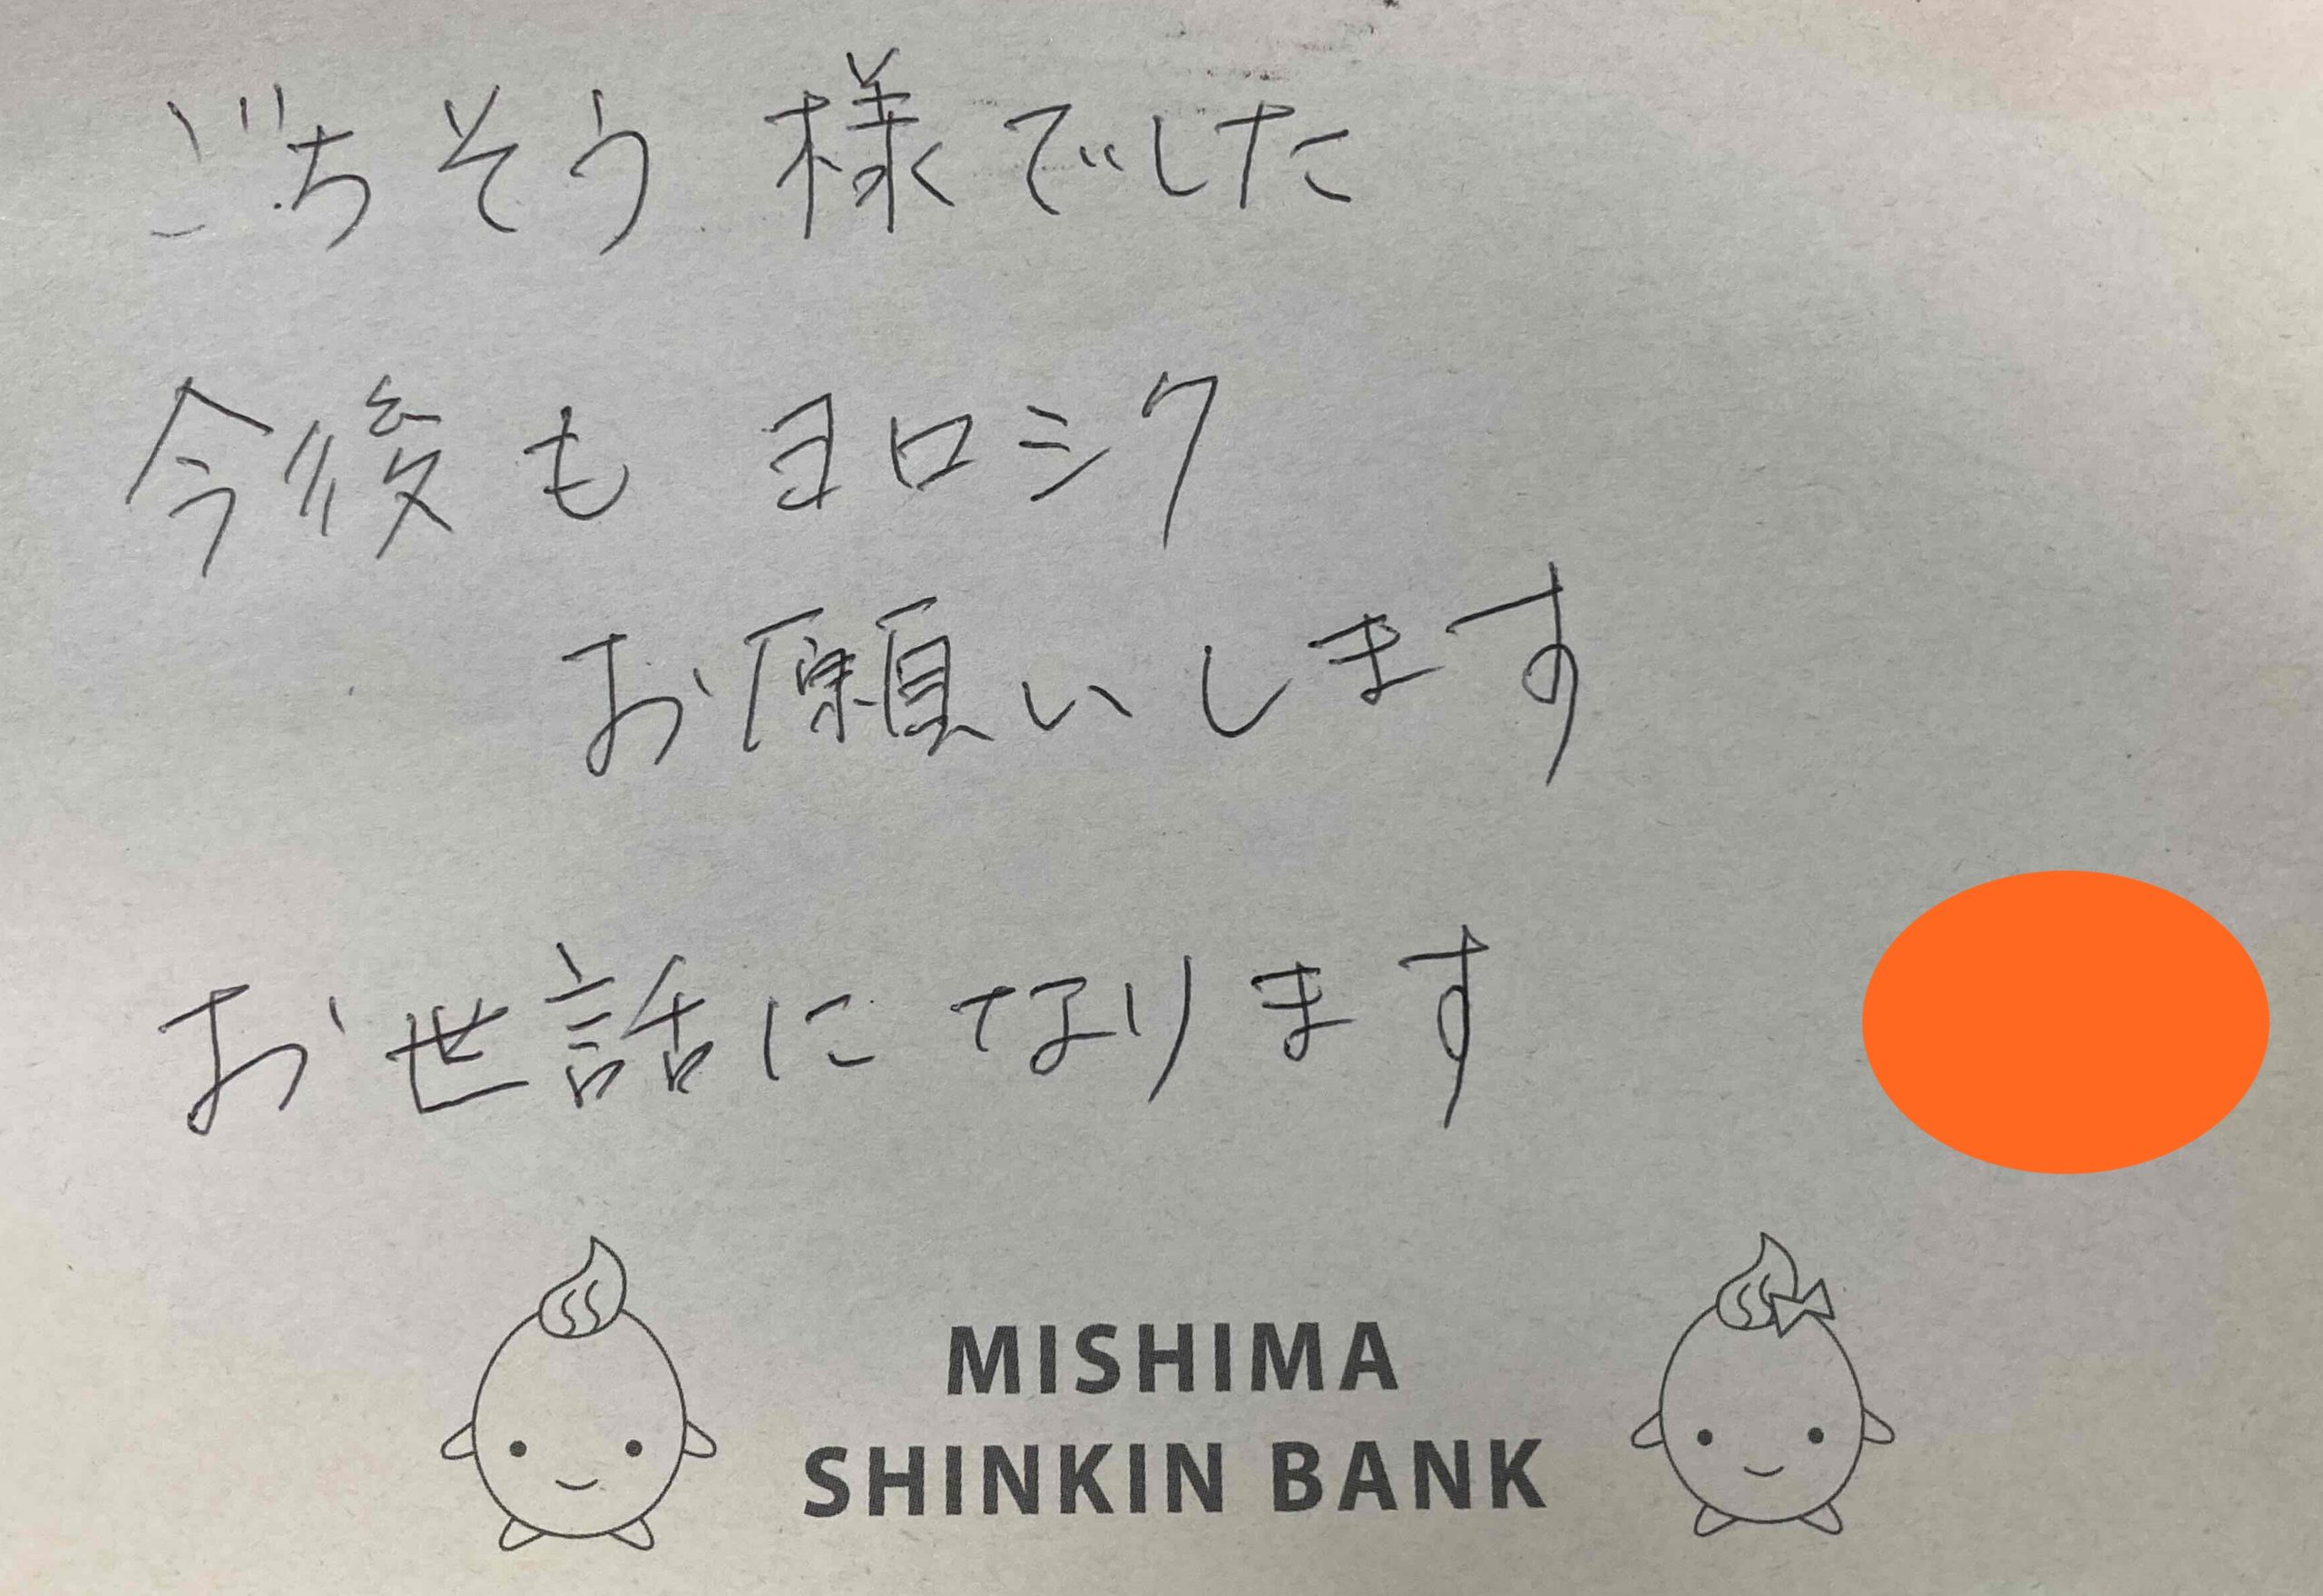 ごちそう様でした
今後もヨロシク
お願いします
お世話になります
MISHIMA
SHINKIN BANK